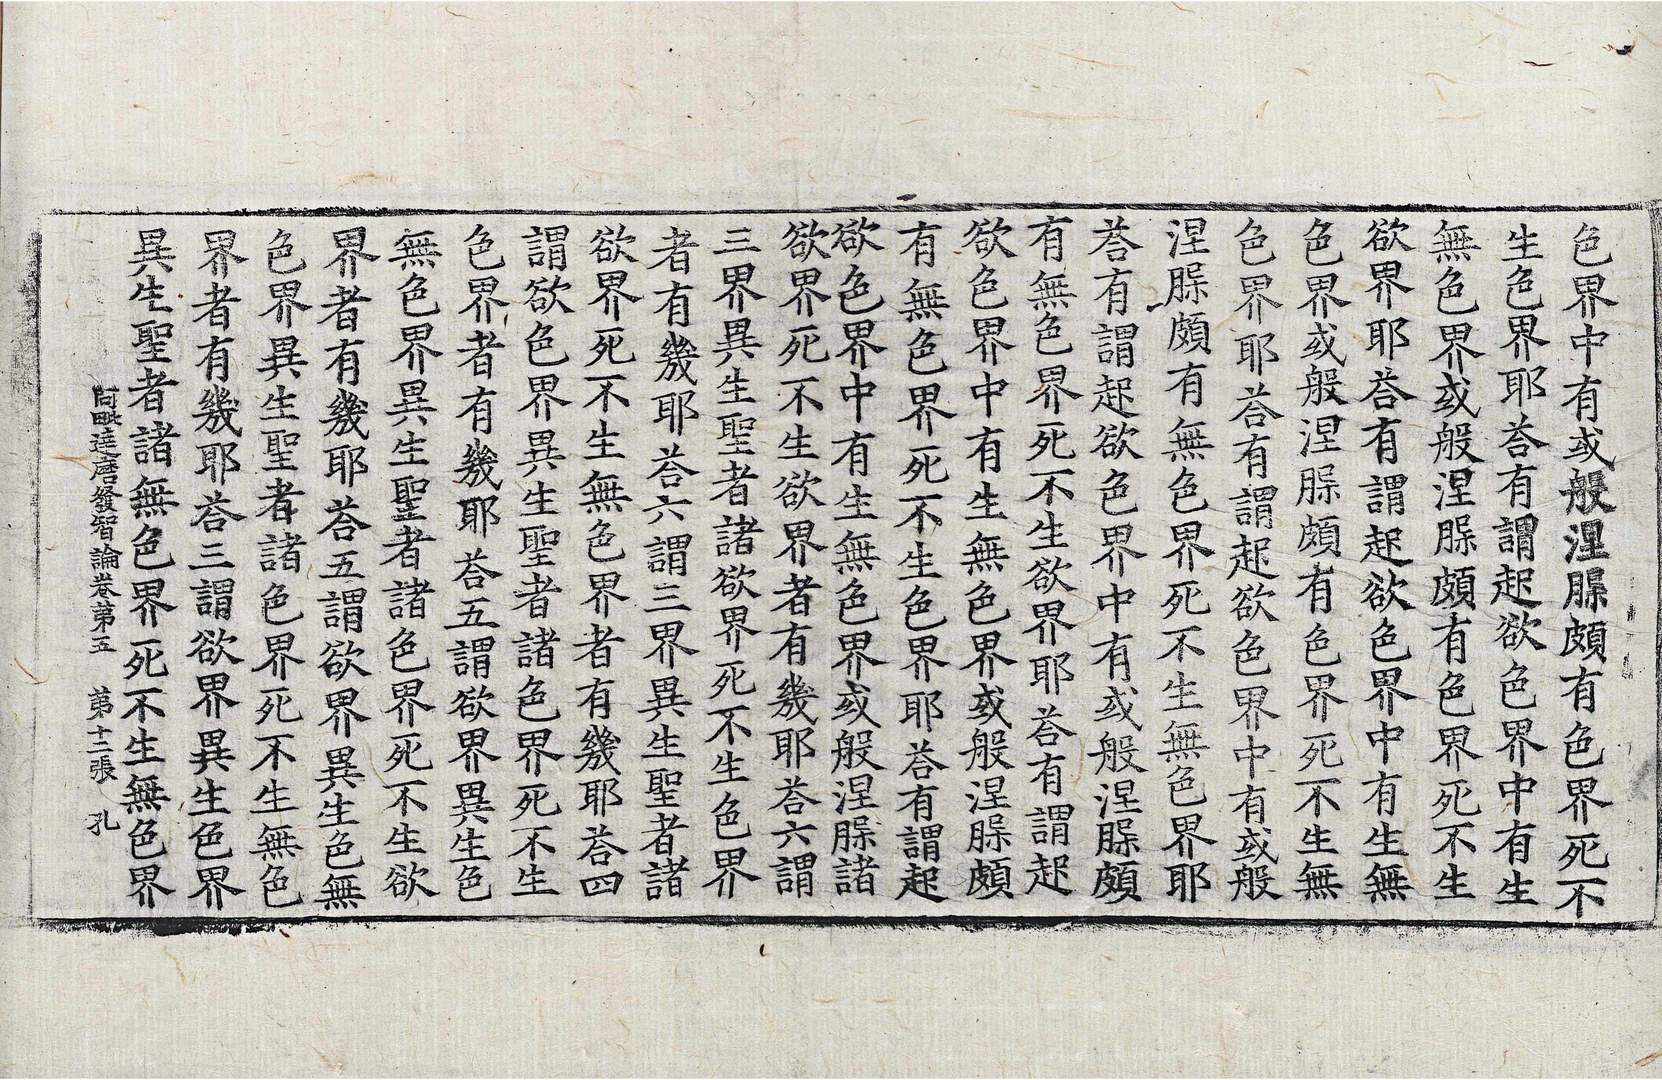 色界中有或般涅槃頗有色界死不
生色界耶荅有謂起欲色界中有生
無色界或般涅槃頗有色界死不生
欲界耶荅有謂起欲色界中有生無
色界或般涅槃頗有色界死不生無
色界耶荅有謂起欲色界中有或般
涅槃頗有無色界死不生無色界耶
荅有謂起欲色界中有或般涅槃頗
有無色界死不生欲界耶荅有謂起
欲色界中有生無色界或般涅槃頗
有無色界死不生色界耶荅有謂起
欲色界中有生無色界或般涅槃諸
欲界死不生欲界者有幾耶荅六謂
三界異生聖者諸欲界死不生色界
者有幾耶荅六謂三界異生聖者諸
欲界死不生無色界者有幾耶荅四
謂欲色界異生聖者諸色界死不生
色界者有幾耶荅五謂欲界異生色
無色界異生聖者諸色界死不生欲
界者有幾耶荅五謂欲界異生色無
色界異生聖者諸色界死不生無色
界者有幾耶荅三謂欲界異生色界
異生聖者諸無色界死不生無色界
阿毗達磨發智論卷第五 第十二張 孔